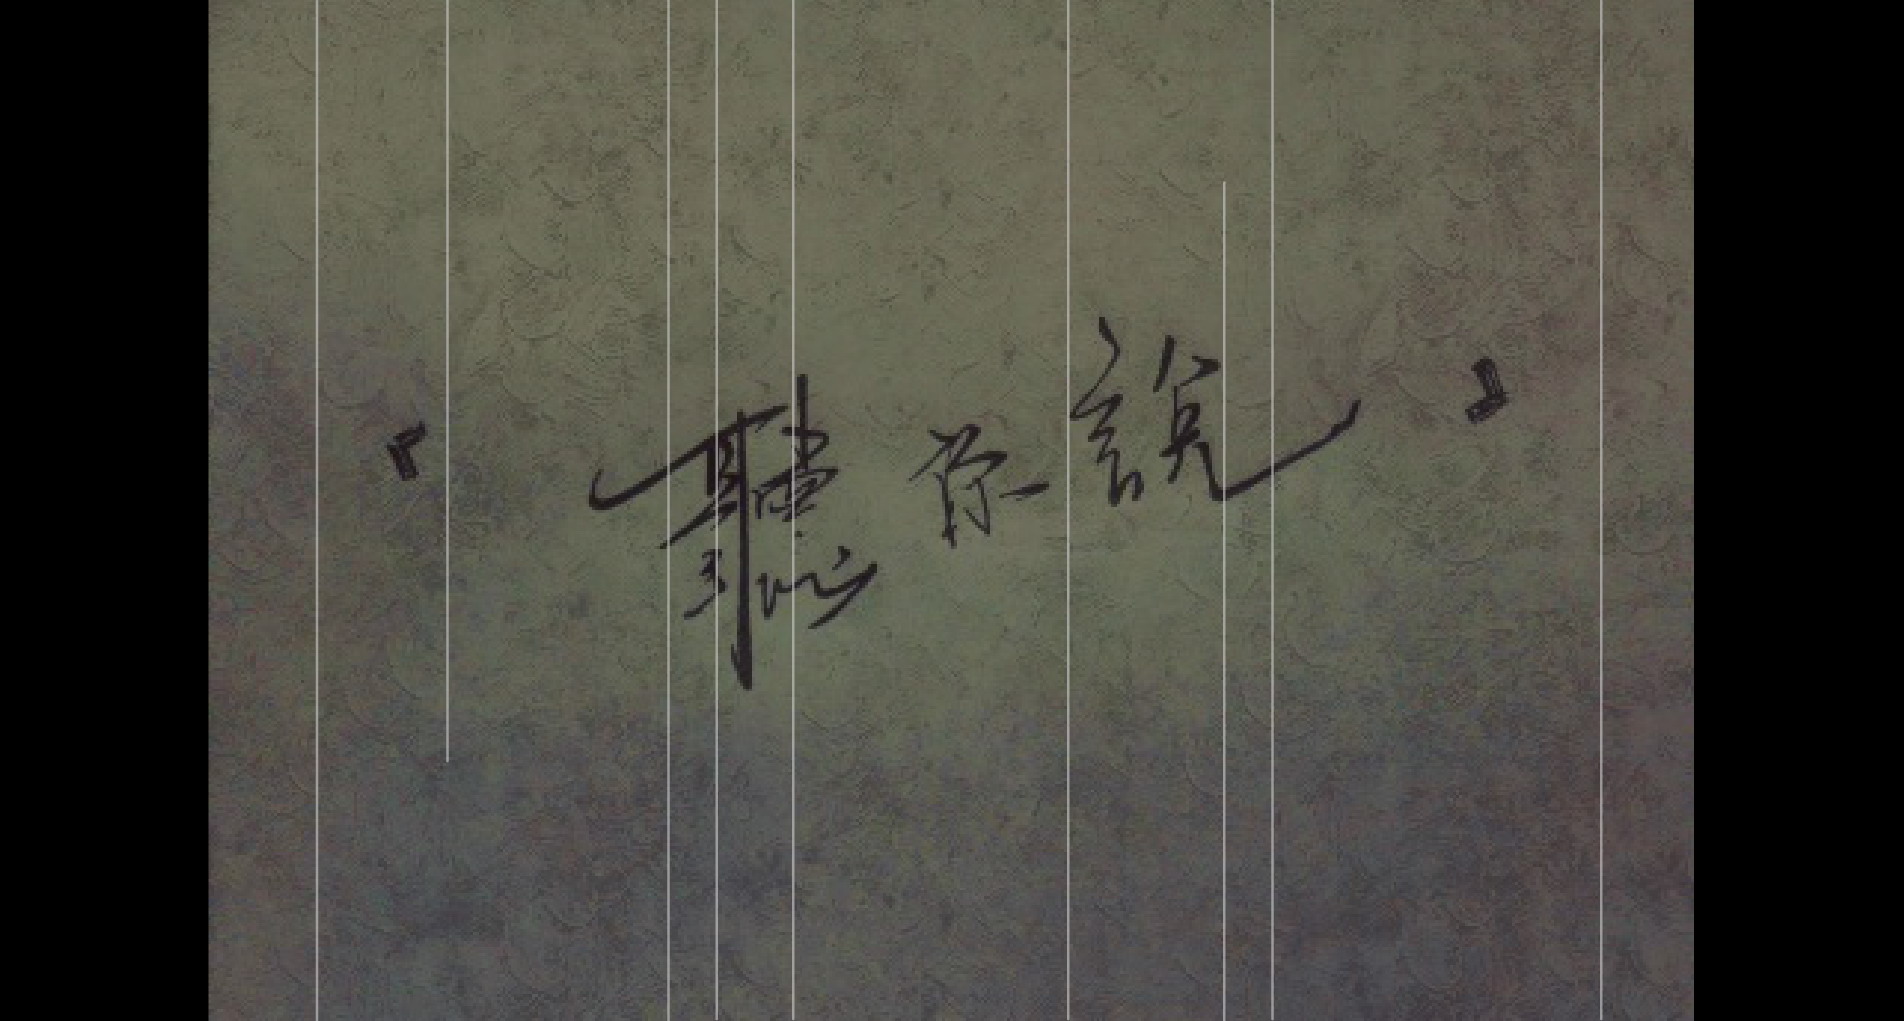 『聽你說』